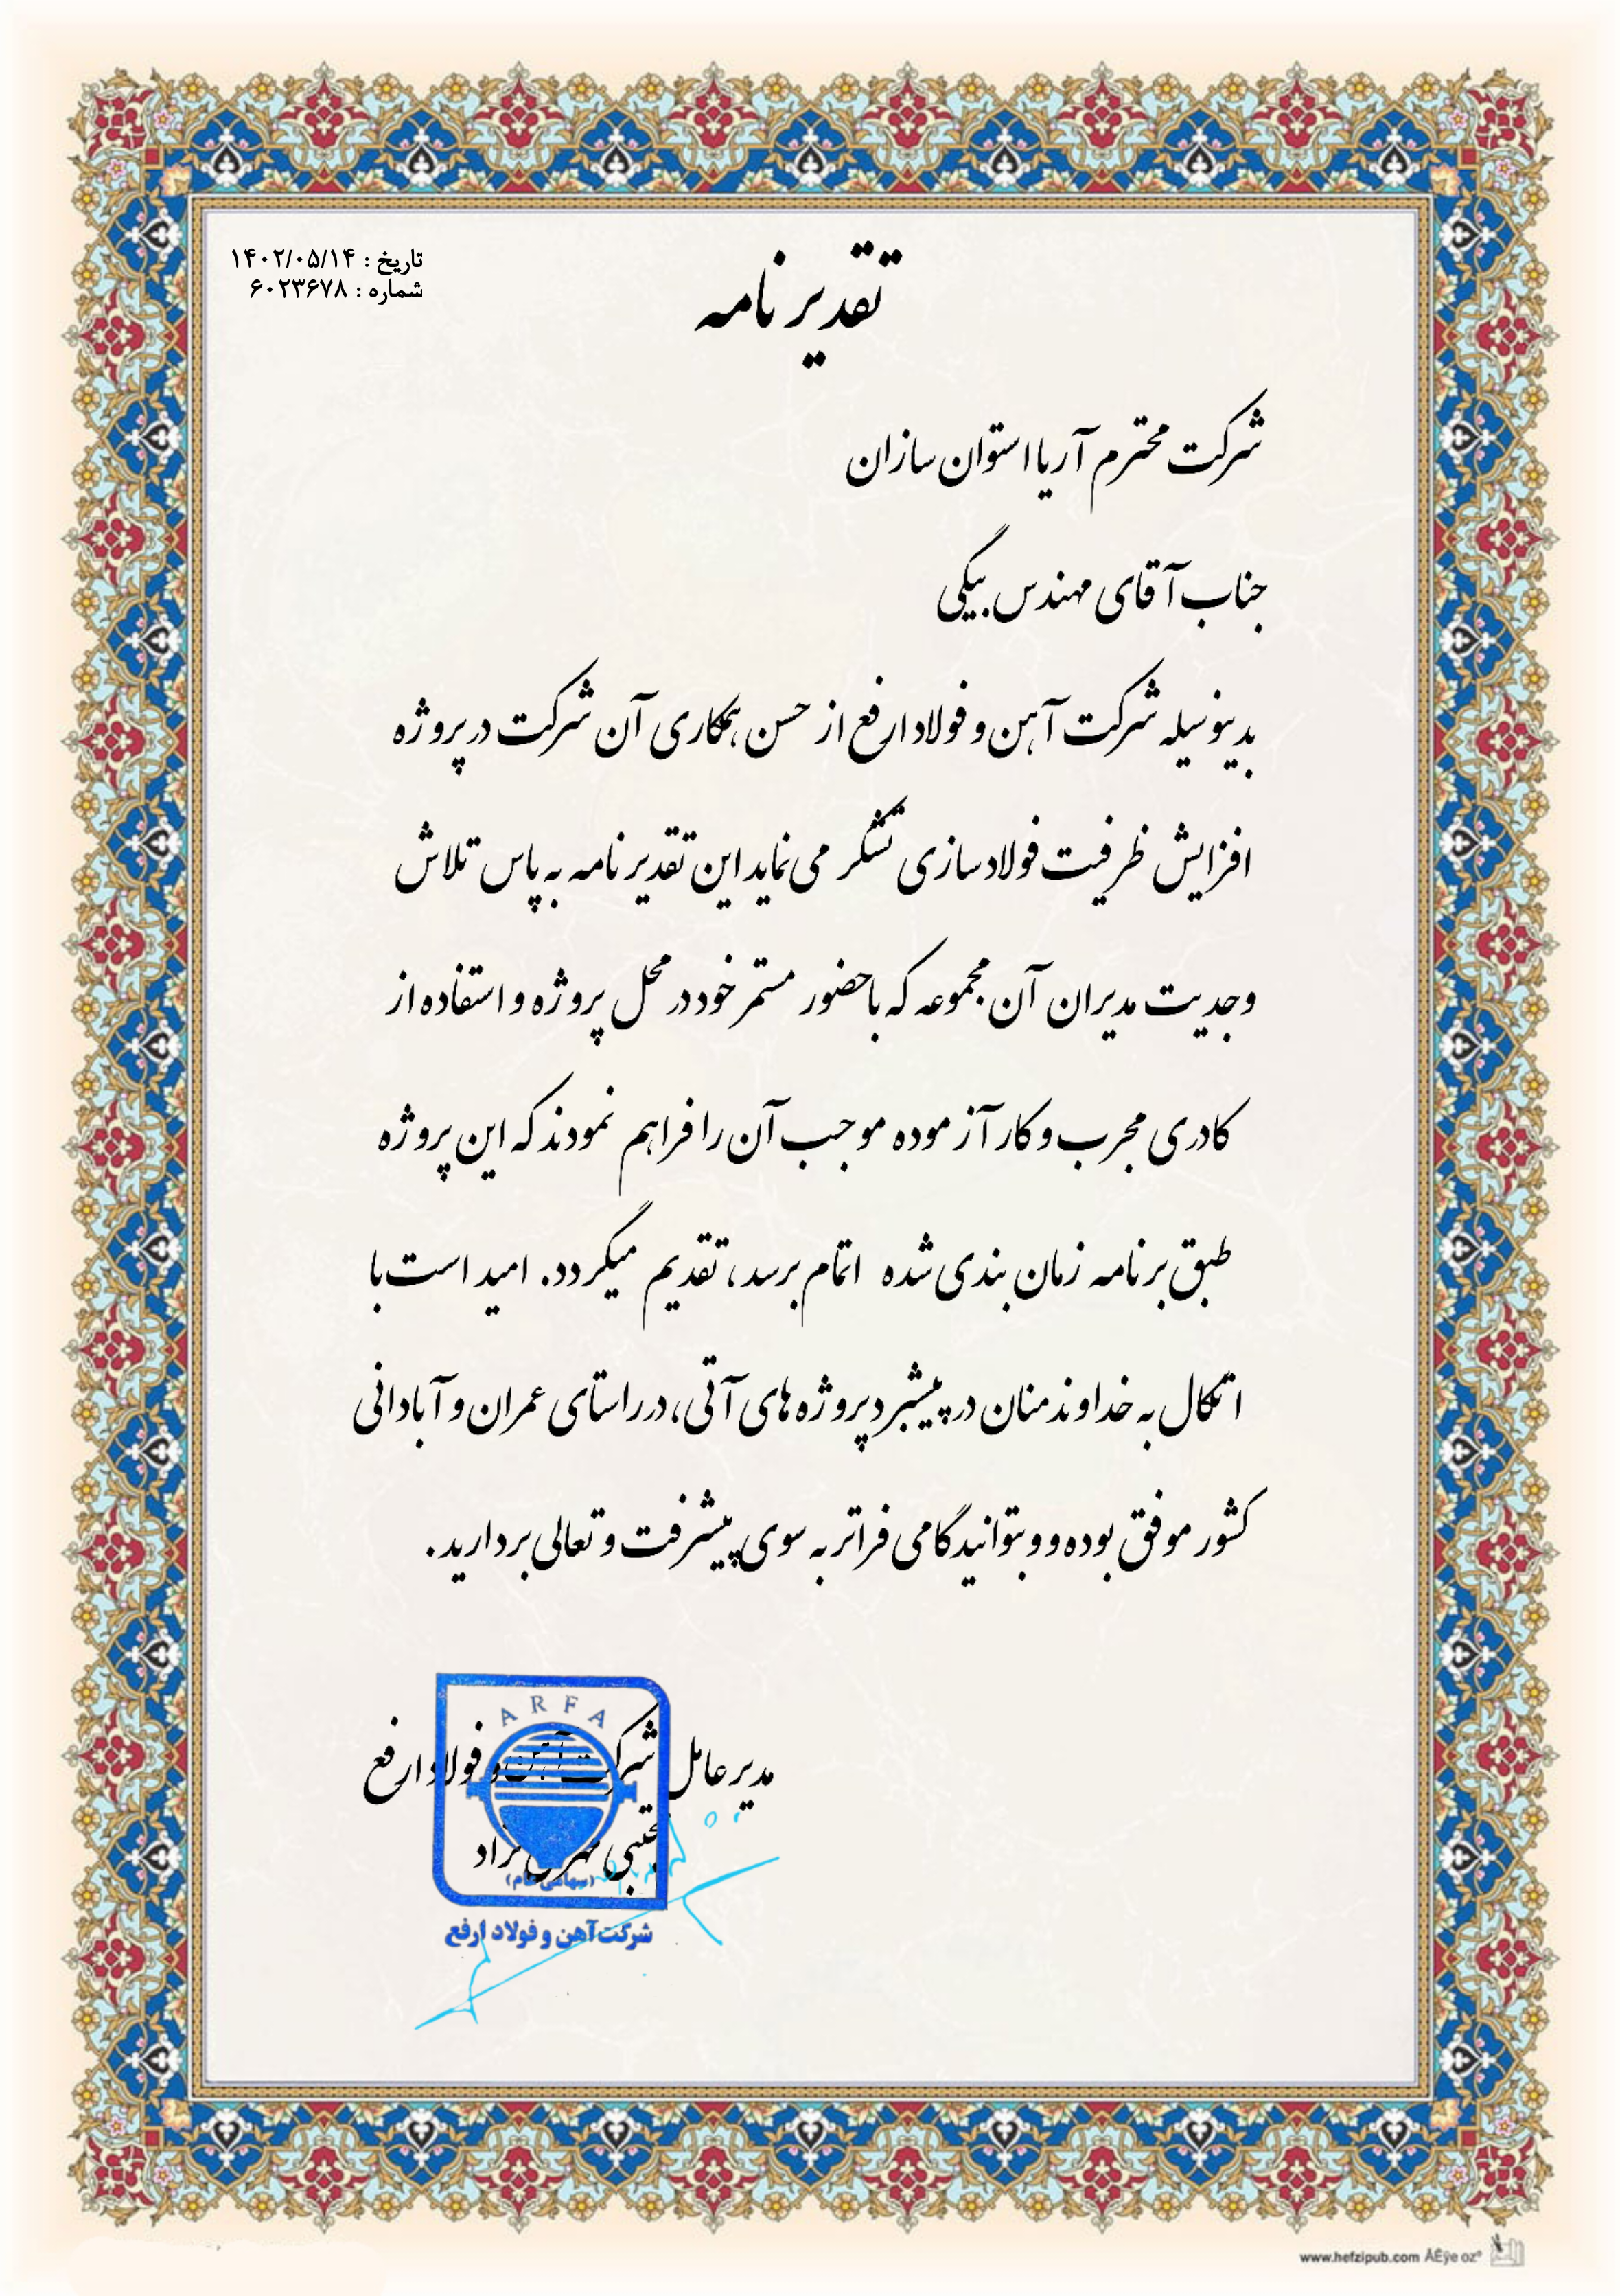 تقدیر نامه
تاریخ : ۱۴۰۲/۰۵/۱۴
شماره : ۶۰۲۳۶۷۸
شرکت محترم آریا استوان سازان
جناب آقای مهندس بیگی
بدینوسیله شرکت آهن و فولاد ارفع از حسن همکاری آن شرکت در پروژه
افزایش ظرفیت فولاد سازی تشکر می نماید این تقدیر نامه به پاس تلاش
وجدیت مدیران آن مجموعه که با حضور مستمر خود در محل پروژه و استفاده از
کادری مجرب و کار آزموده موجب آن را فراهم نمودند که این پروژه
طبق برنامه زمان بندی شده اتمام برسد، تقدیم میگردد. امید است با
اتکال به خداوند منان در پیشبرد پروژه های آتی، در راستای عمران و آبادانی
کشور موفق بوده و و بتوانید گامی فراتر به سوی پیشرفت و تعالی بردارید.
مدیر عامل شرکت آهن و فولاد ارفع
ARFA
(سهامی عام)
شرکت آهن و فولاد ارفع
www.hefzipub.com